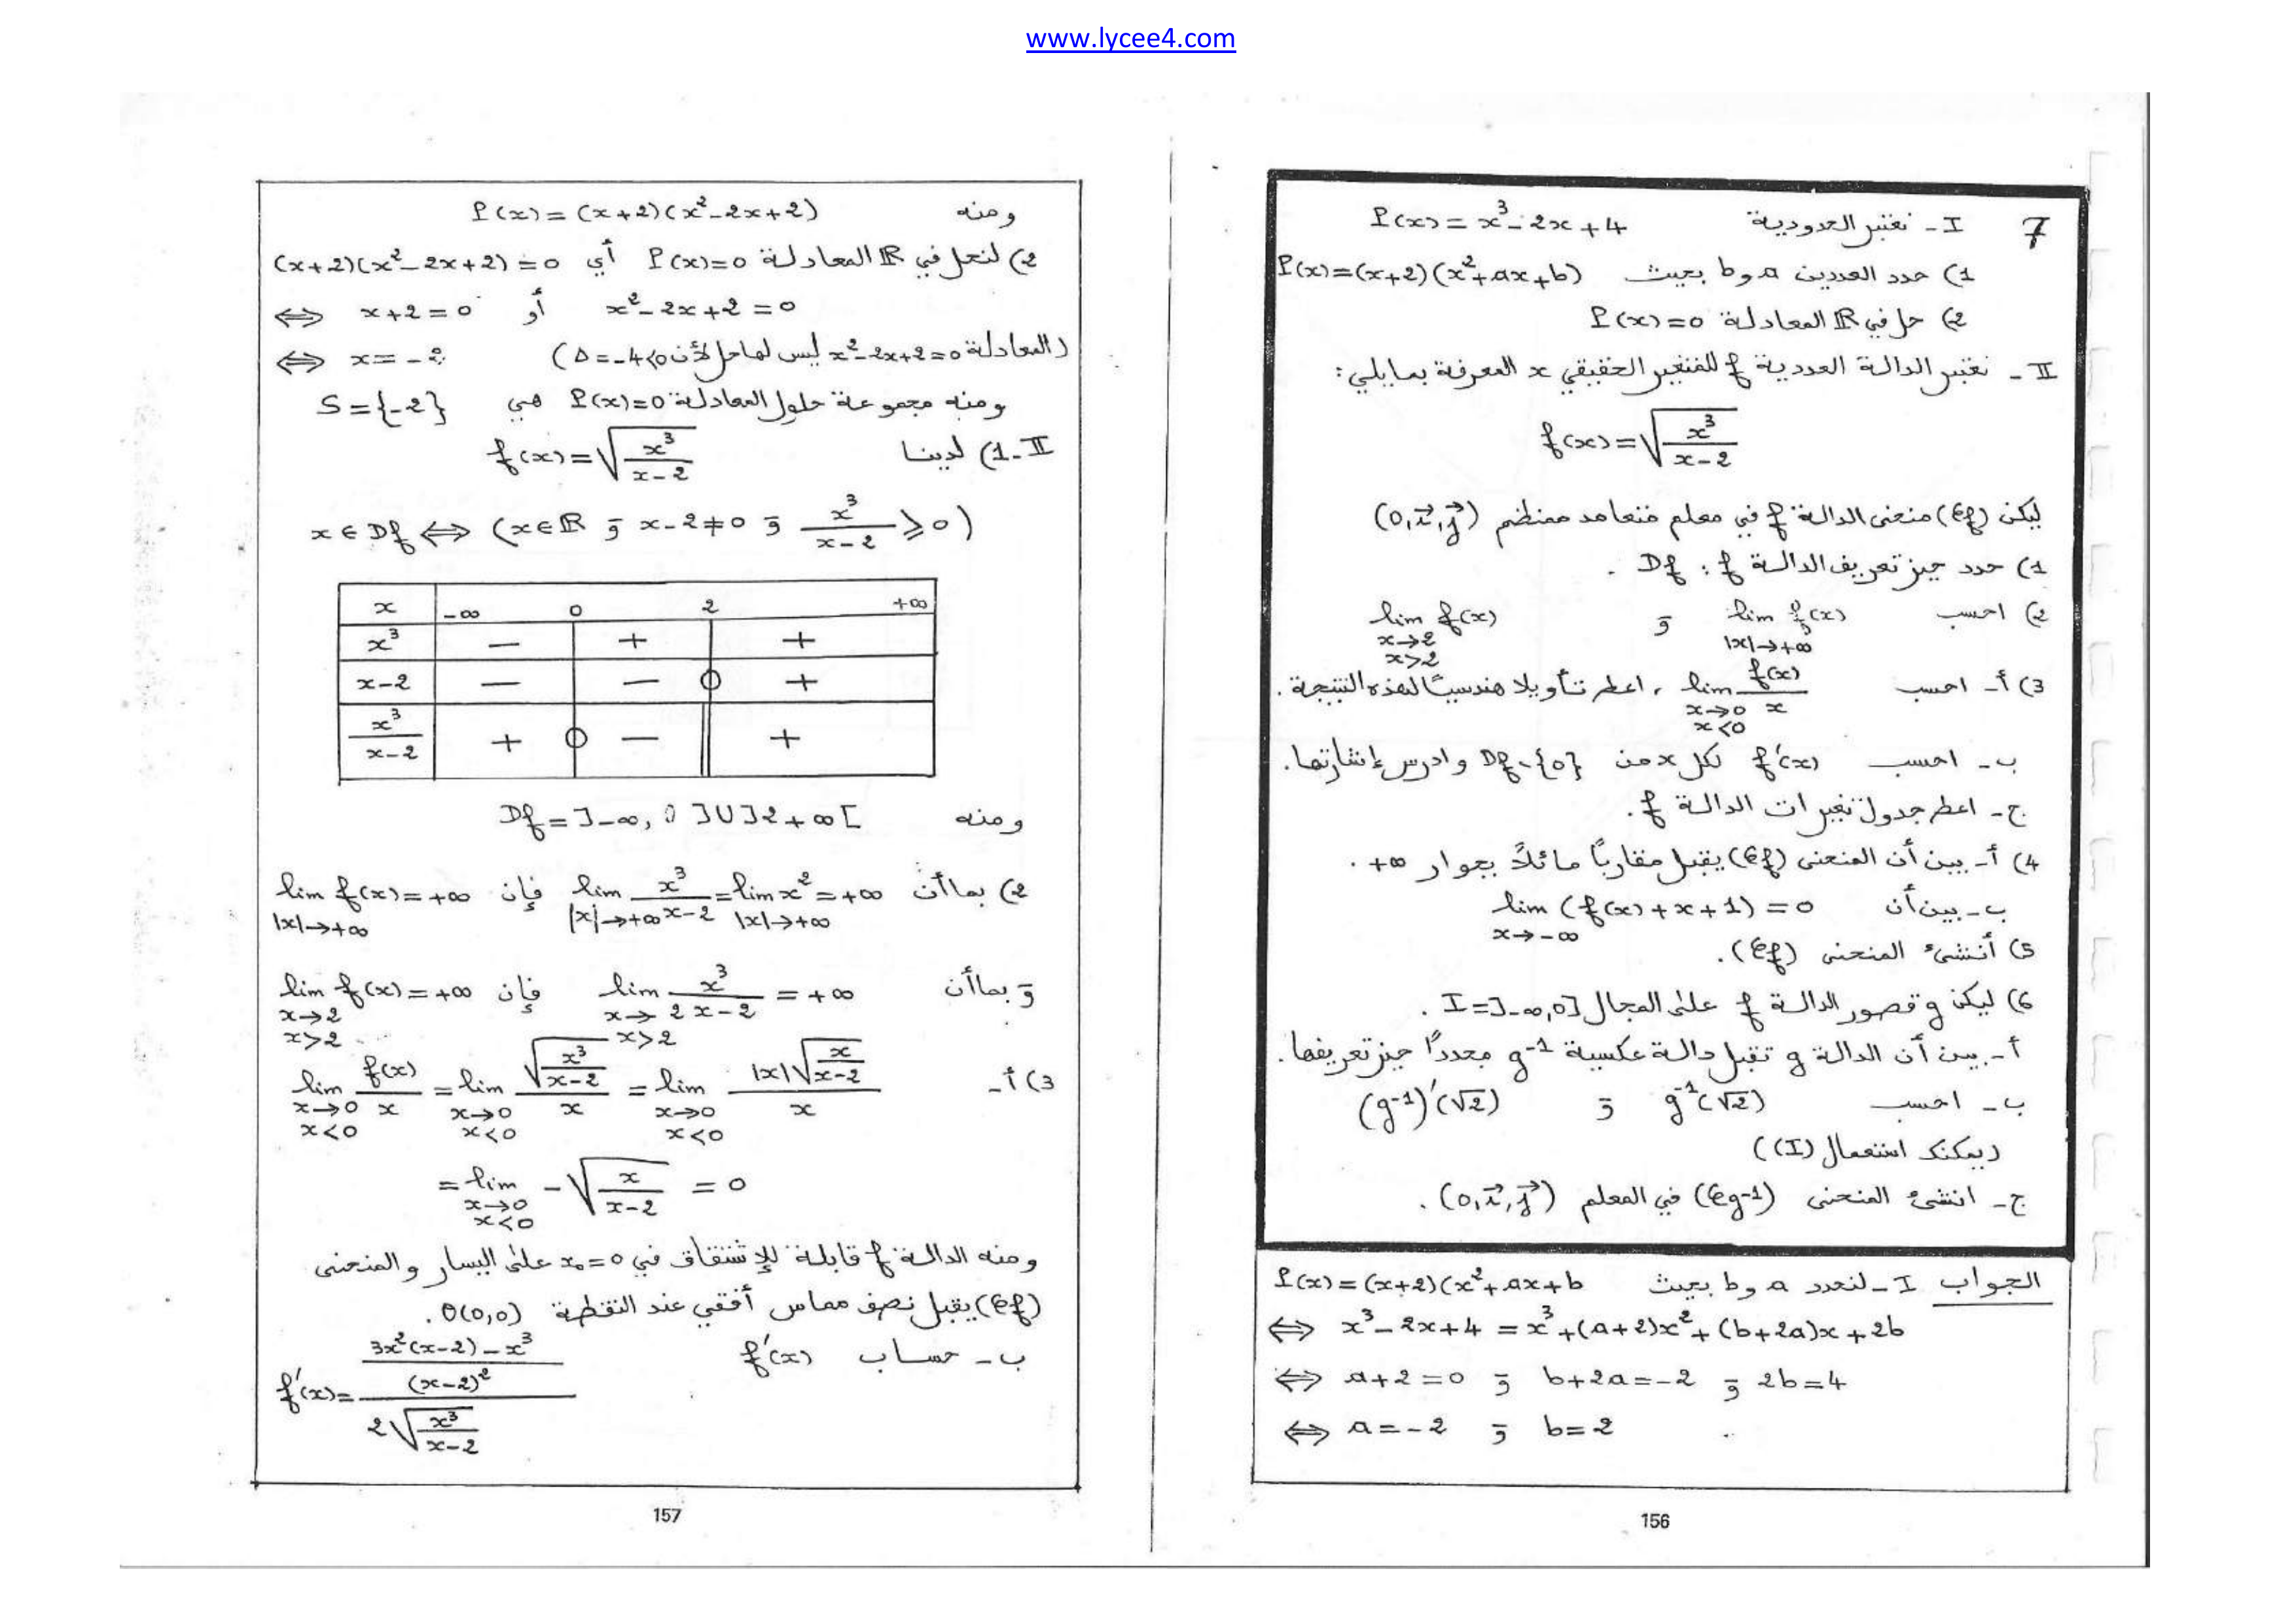 www.lycee4.com
7 I - نعتبر الحدودية P(x) = x³ - 2x + 4
1) حدد العددين a و b بحيث P(x)=(x+2)(x²+ax+b)
2) حل في ℝ المعادلة P(x)=0
II - نعتبر الدالة العددية f للمتغير الحقيقي x المعرفة بمايلي:
f(x)=√(x³/(x-2))
ليكن (𝒞f) منحنى الدالة f في معلم متعامد ممنظم (o,i⃗,j⃗)
1) حدد حيز تعريف الدالة f : Df .
2) احسب lim f(x) |x|→+∞ و lim f(x) x→2 x>2
3) أ- احسب lim f(x)/x x→0 x<0 ، اعط تأويلا هندسيًا لهذه النتيجة .
ب- احسب f'(x) لكل x من Df-{0} وادرس إشارتها.
ج- اعط جدول تغيرات الدالة f.
4) أ- بين أن المنحنى (𝒞f) يقبل مقاربًا مائلاً بجوار +∞ .
ب- بين أن lim (f(x)+x+1) = 0 x→-∞
5) أنشئ المنحنى (𝒞f).
6) ليكن g قصور الدالة f على المجال I=]-∞,0] .
أ- بين أن الدالة g تقبل دالة عكسية g⁻¹ محددًا حيز تعريفها.
ب- احسب g⁻¹(√2) و (g⁻¹)'(√2)
(يمكنك استعمال (I))
ج- انشئ المنحنى (𝒞g⁻¹) في المعلم (o,i⃗,j⃗) .
الجواب I - لنحدد a و b بحيث P(x)=(x+2)(x²+ax+b
⟺ x³-2x+4 = x³+(a+2)x²+(b+2a)x+2b
⟺ a+2=0 و b+2a=-2 و 2b=4
⟺ a=-2 و b=2
156
ومنه P(x)=(x+2)(x²-2x+2)
2) لنحل في ℝ المعادلة P(x)=0 أي (x+2)(x²-2x+2)=0
⟺ x+2=0 أو x²-2x+2=0
⟺ x=-2 (المعادلة x²-2x+2=0 ليس لها حل لأن Δ=-4<0)
ومنه مجموعة حلول المعادلة P(x)=0 هي S={-2}
II-1) لدينا f(x)=√(x³/(x-2))
x∈Df ⟺ (x∈ℝ و x-2≠0 و x³/(x-2) ⩾ 0)
x -∞ 0 2 +∞
x³ - + +
x-2 - - 0 +
x³/(x-2) + 0 - +
ومنه Df=]-∞, 0]∪]2+∞[
2) بما أن lim x³/(x-2) |x|→+∞ = lim x² |x|→+∞ = +∞ فإن lim f(x)=+∞ |x|→+∞
و بما أن lim x³/(x-2) x→2 x>2 = +∞ فإن lim f(x)=+∞ x→2 x>2
3) أ- lim f(x)/x x→0 x<0 = lim √(x³/(x-2))/x x→0 x<0 = lim |x|√(x/(x-2))/x x→0 x<0
= lim -√(x/(x-2)) x→0 x<0 = 0
ومنه الدالة f قابلة للإشتقاق في x₀=0 على اليسار والمنحنى
(𝒞f) يقبل نصف مماس أفقي عند النقطة O(0,0).
ب- حساب f'(x)
f'(x)= ((3x²(x-2)-x³)/(x-2)²)/(2√(x³/(x-2)))
157